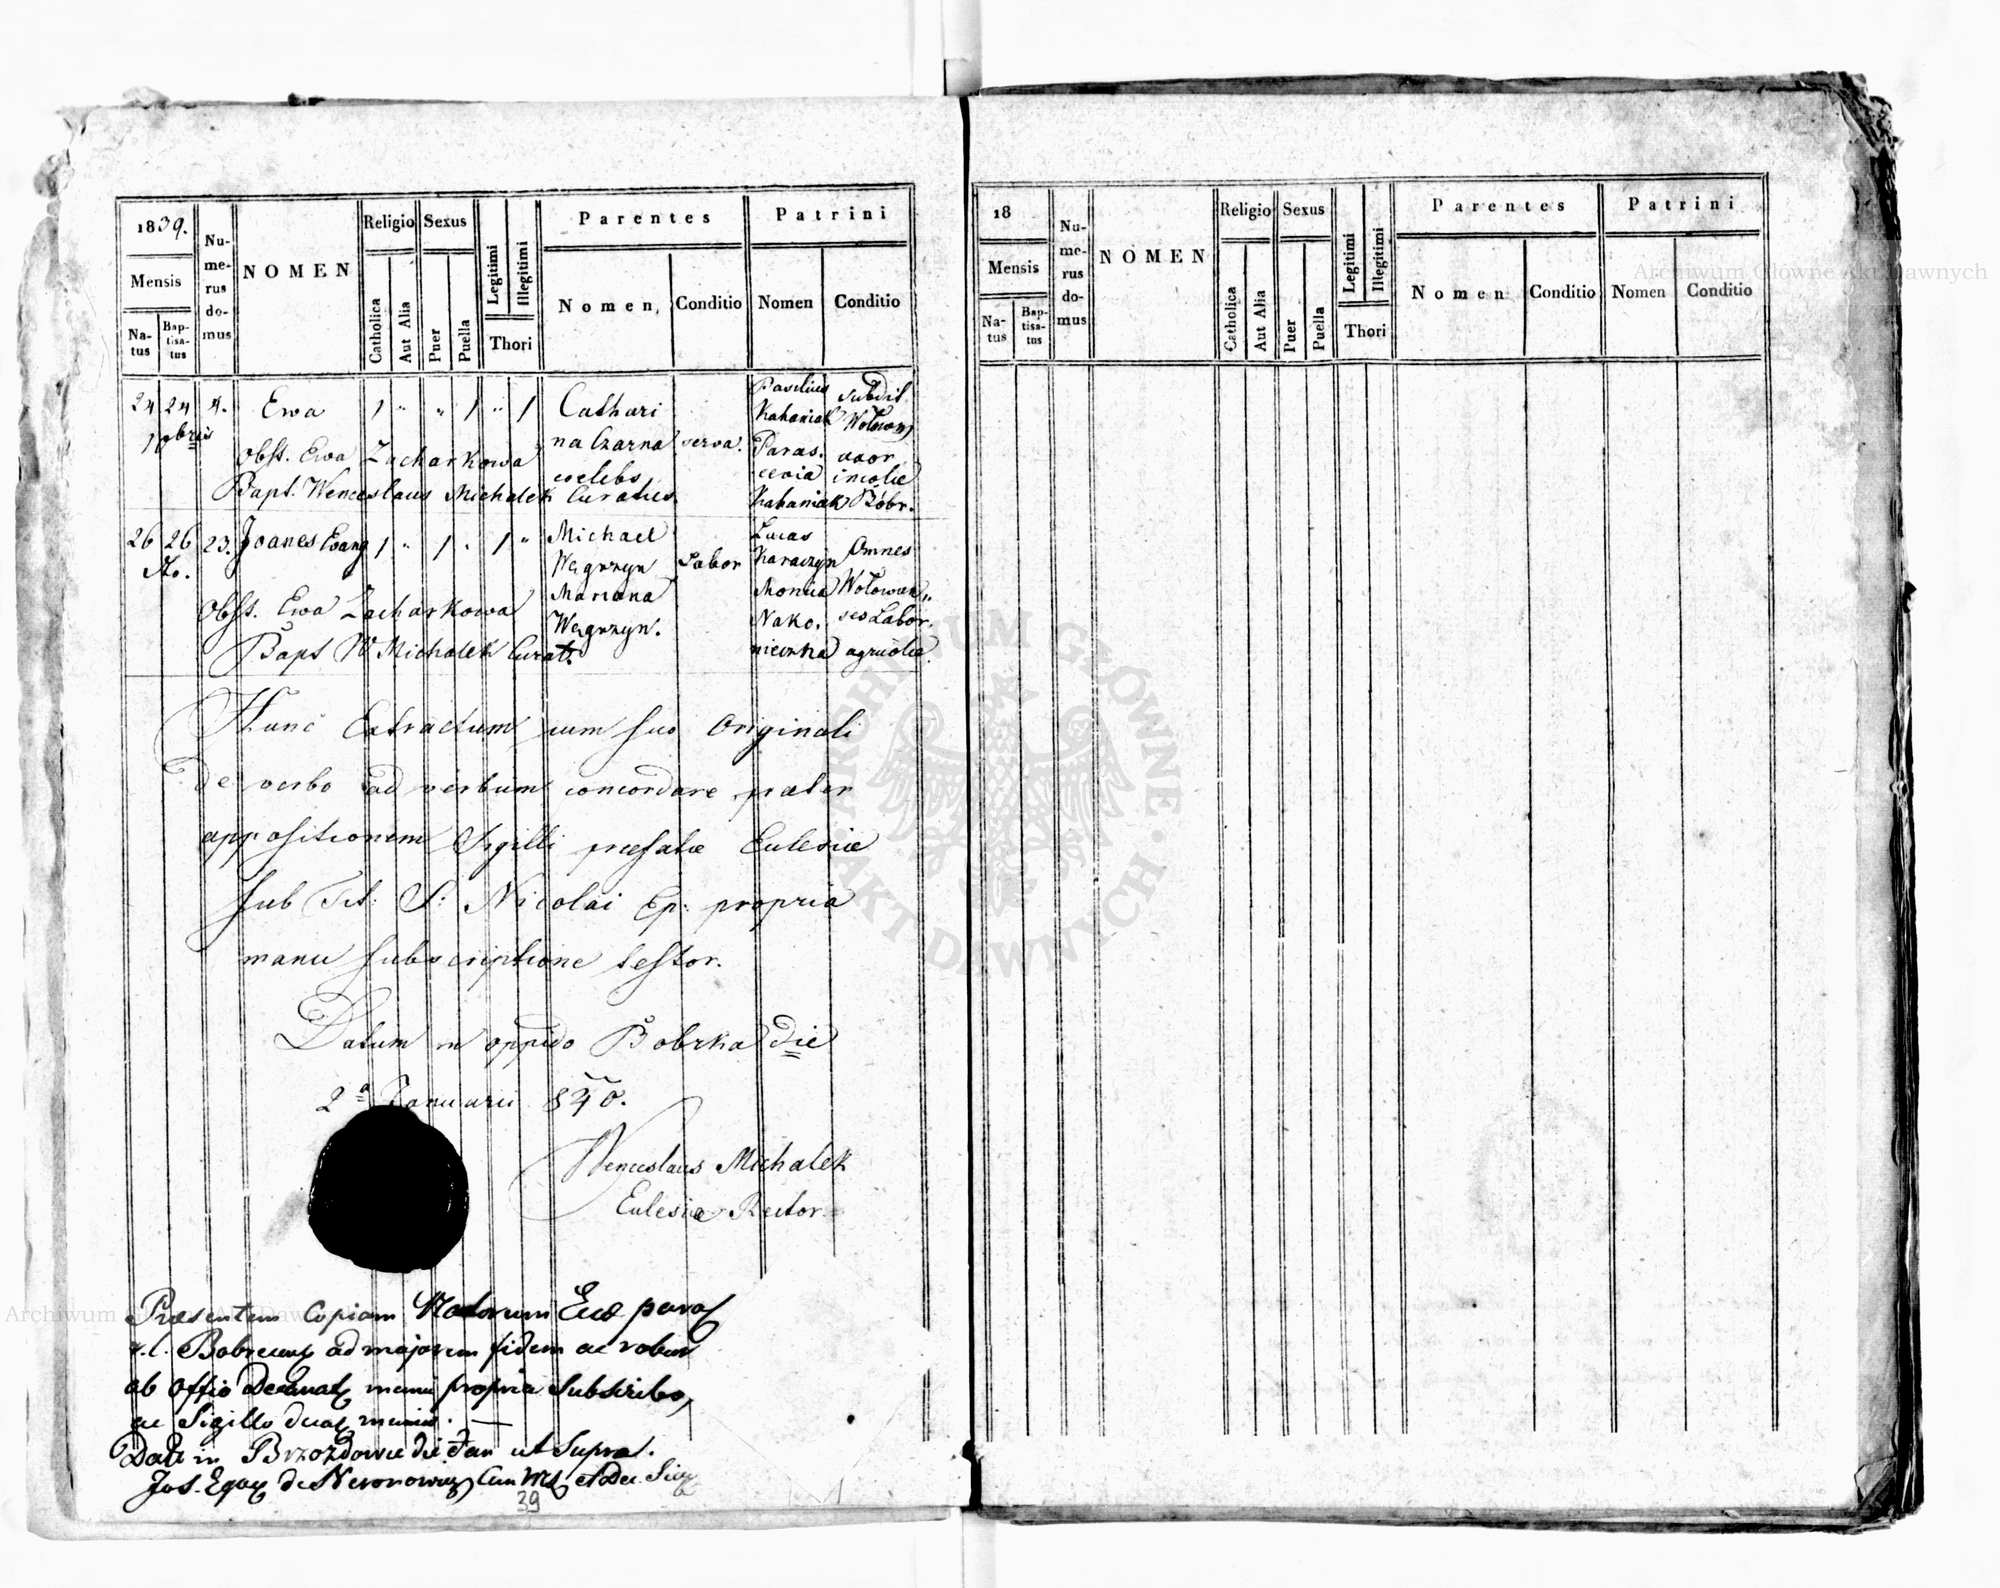 1839.
Mensis
Natus
Baptisatus
Numerus domus
NOMEN
Religio
Catholica
Aut Alia
Sexus
Puer
Puella
Legitimi
Illegitimi
Thori
Parentes
Nomen,
Conditio
Patrini
Nomen
Conditio
24 24 4. Ewa 1 " " 1 " 1 Cathari
10bris
na Czarna serva.
coelebs
Kahaniak
Paras. uxor
cevia incolae
Kahaniak Bóbr.
Obst. Ewa Zacharkowa
Bapt. Wenceslaus Michalek Curatus
26 26 23. Joanes Evang 1 " 1 " 1 " Michael
Węgrzyn Labor
Mariana
Węgrzyn.
Lucas
Karaczyn Omnes
Monica
Nako. ses Labor.
nieczka agricolae.
Obst. Ewa Zacharkowa
Bapt W Michalek Curat.
Hunc Extractum cum suo Originali
de verbo ad verbum concordare praeter
appositionem Sigilli praefatae Eclesiae
sub Tit: S: Nicolai Ep: propria
manu subscriptione testor.
Datum in oppido Bobrka die
2a Januarii 840.
Wenceslaus Michalek
Eclesiae Rector
Praesentem Copiam Natorum
r. l. ad majorem fidem ac robur
ab Offio Decanal manu propria Subscribo,
ac Sigillo munio.
Dat in Brzozdowce die Jan ut Supra.
Jos.
39
18
Mensis
Natus
Baptisatus
Numerus domus
NOMEN
Religio
Catholica
Aut Alia
Sexus
Puer
Puella
Legitimi
Illegitimi
Thori
Parentes
Nomen
Conditio
Patrini
Nomen
Conditio
Archiwum Główne Akt Dawnych
ARCHIWUM GŁÓWNE AKT DAWNYCH
Archiwum Główne Akt Dawnych